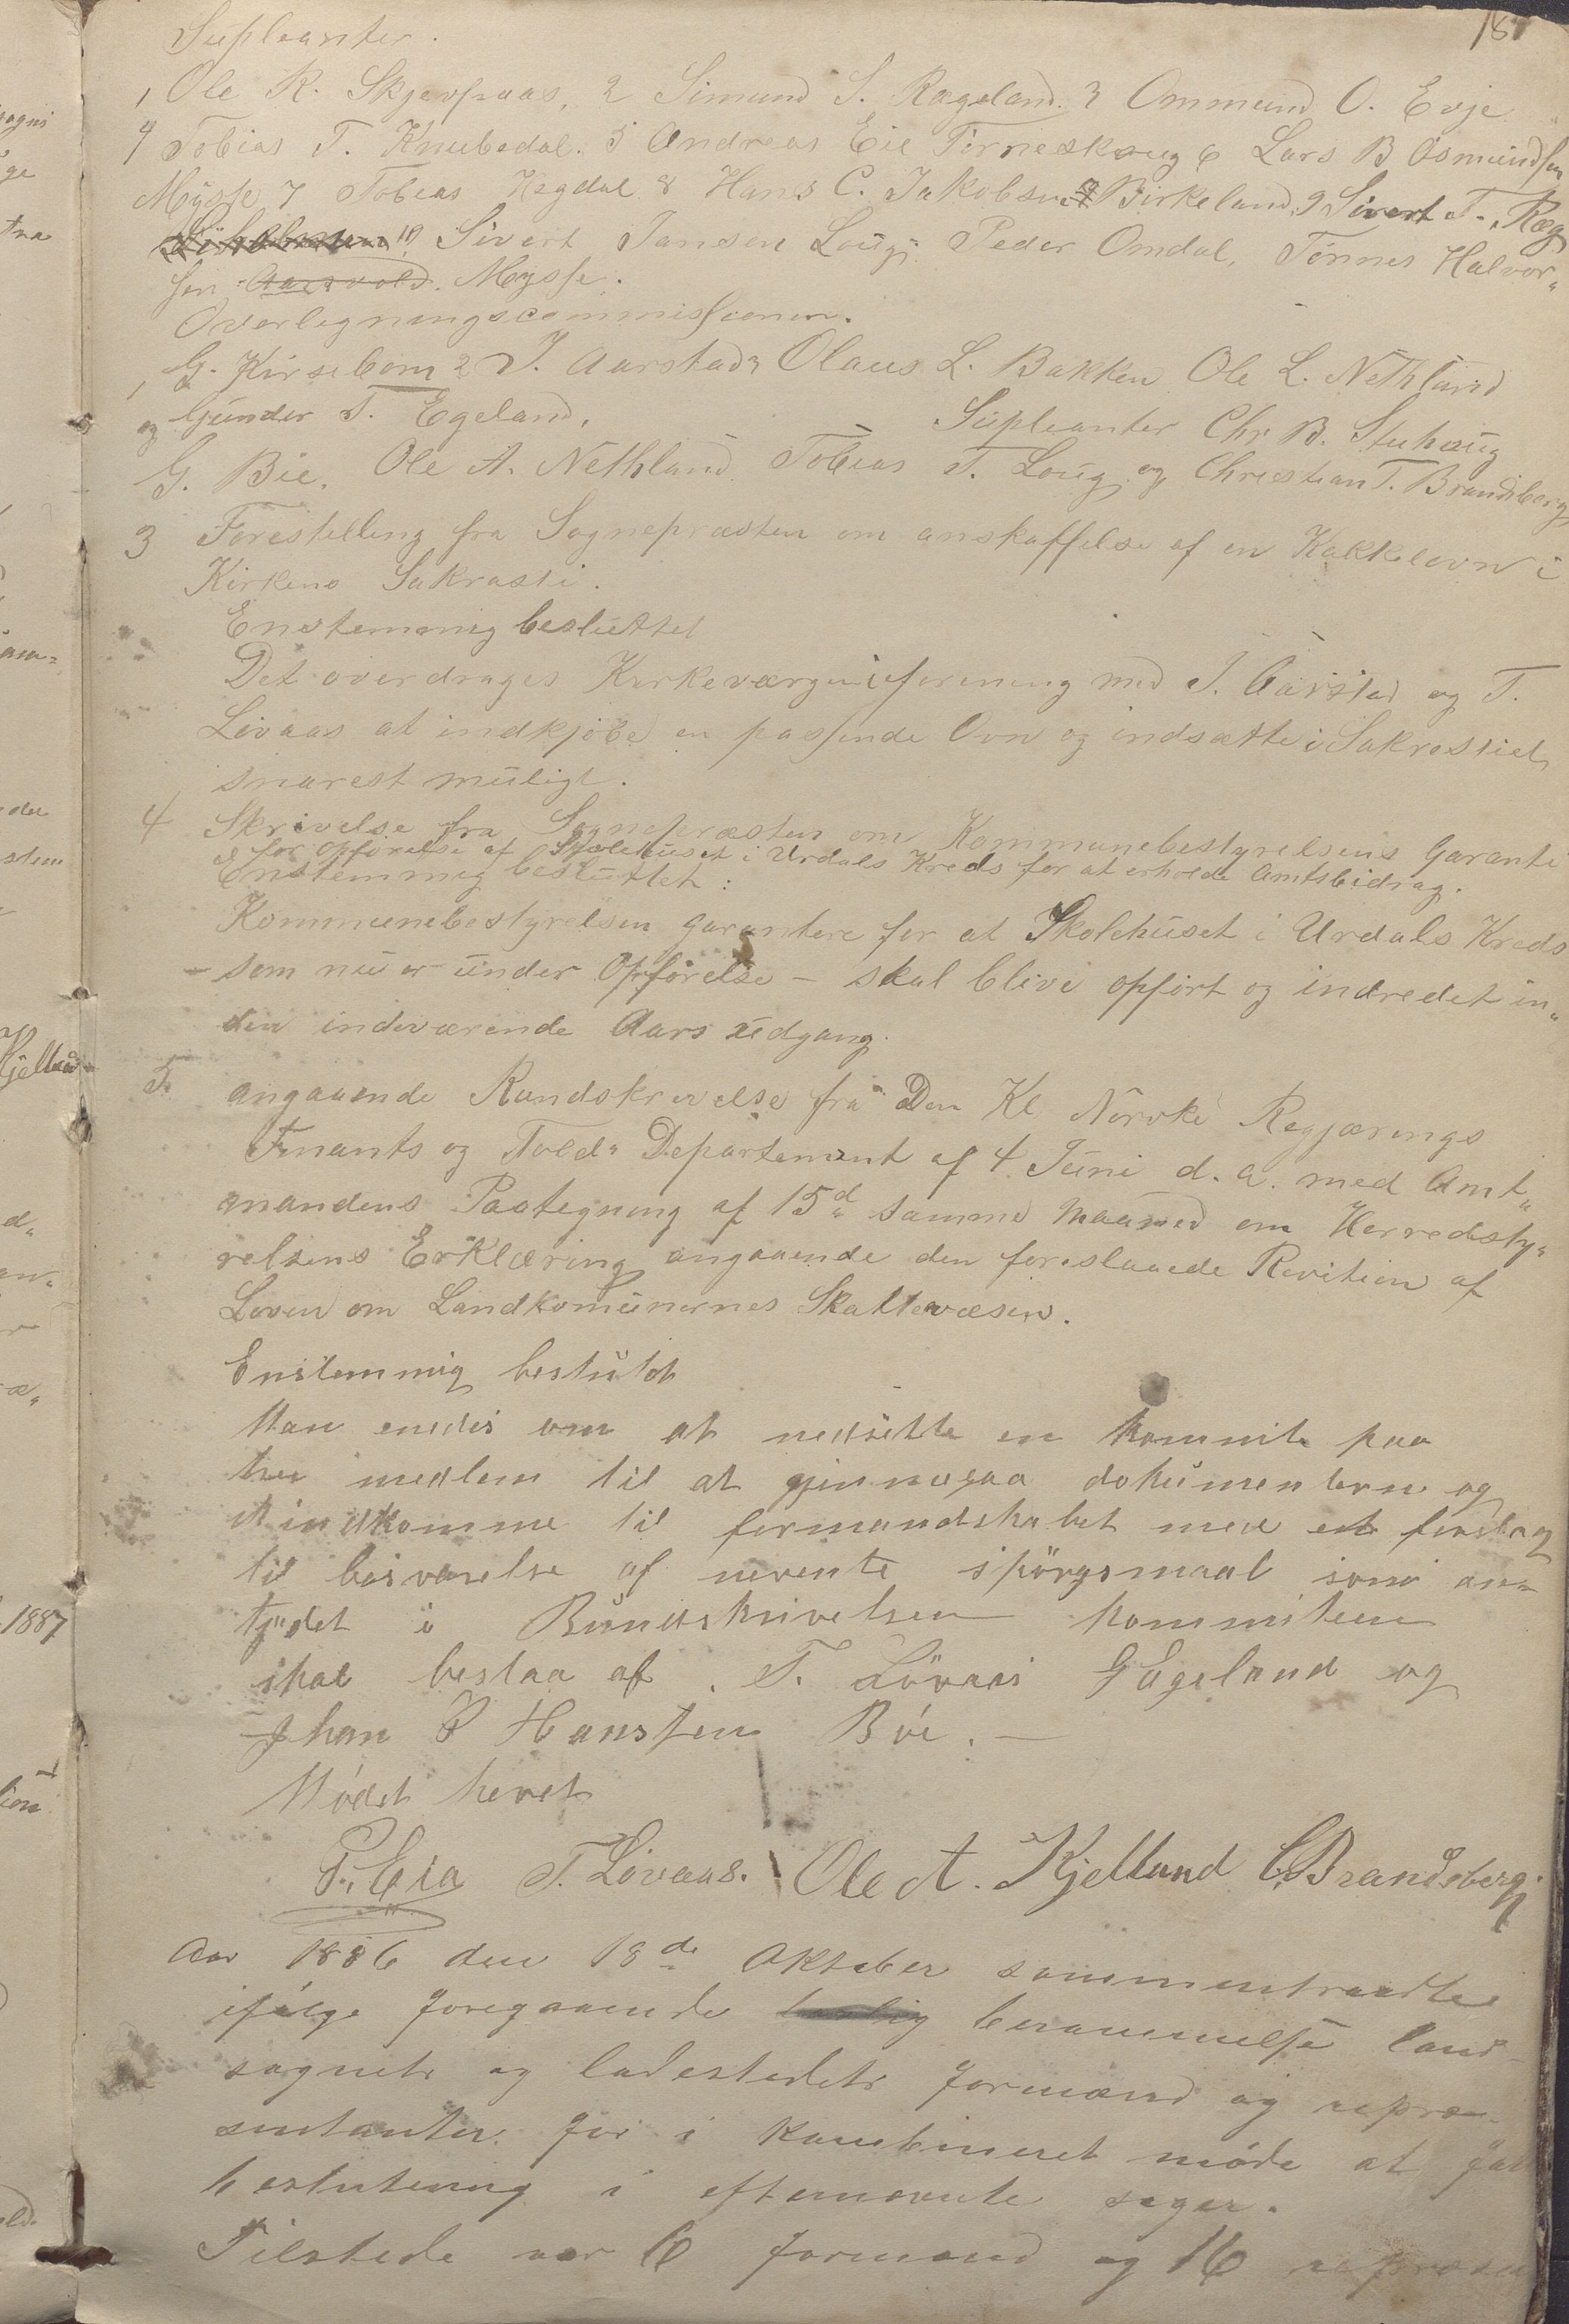 187
Supleanter.
1 Ole R. Skjævpaas, 2 Simund S. Rægeland. 3 Ommund O. Evje
4 Tobias T. Knubedal. 5 Andreas Eie Tørneskoug 6 Lars B Osmundsen
Mysse 7 Tobias Hegdal 8 Hans C. Jakobsen Birkeland, 9 Sivert T. Ræg
10 Sivert Jansen Loug, Peder Omdal, Tønnes Halvor„
sen Aarrvold. Mysse.
Overlegningscommissionen.
1 G. Kirsebom 2 J. Aarstad 3 Olaus L. Bakken Ole L. Nethland
og Gunder T. Egeland.
Supleanter Chr. B. Stuhaug
G. Bie, Ole A. Nethland Tobias T. Loug og Christian T. Brandsberg
3 Forestelling fra Sognepræsten om anskaffelse af en Kakkelovn i
Kirkens Sakrasti.
Enstemmig besluttet
Det overdrages Kirkeværgen i forening med J. Aarstad og T.
Lövaas at indkjöbe en passende Ovn og indsætte i Sakrastiet
snarest muligt.
4 Skrivelse fra Sognepræsten om Kommunebestyrelsens Garanti
for Opførelse af Skolehuset i Urdals Kreds for at erholde Amtsbidrag.
Enstemmig besluttet:
Kommunebestyrelsen garantere for at Skolehuset i Urdals Kreds
– som nu er under Opførelse – skal blive opført og indredet in„
den indeværende Aars udgang.
5. angaaende Rundskrivelse fra Den Kl Norske Regjærings
Finants og Told„ Departement af 4 Juni d. a. med Amt„
mandens Paategning af 15d samme Maaned om Herredsty„
relsens Erklæring angaaende den foreslaaede Revition af
Loven om Landkomunernes Skattevæsen.
Enstemmig beslutet
Man enedes om at nedsætte en komite paa
tre medlem til at gjennegaa dokumentern og
indkomme til formandskabet med et forslag
til besvarelse af nevente spörgsmaal som an„
tydet i Rundskrivelsen kommiteen
skal bestaa af T. Lövaas G Egeland og
Jhan P Hanssen Bøe. —
Mødet hevet
P. Eia T. Lövaas. Ole A. Kjelland C. Brandsberg.
Aar 1886 den 18de Oktober sammentraadte
ifølge foregaaende berammelse land
sognets og ladestedets formænd og repræ„
sentanter for i kombineret møde at fat
beslutning i efternævnte sager.
Tilstede var 6 formænd og 16 repræsen